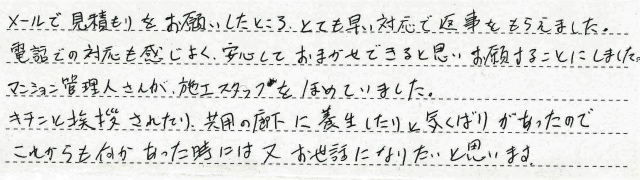 メールで見積もりをお願いしたところ、とても早い対応で返事をもらえました。
電話での対応も感じよく、安心しておまかせできると思いお願することにしました。
マンション管理人さんが、施工スタッフをほめていました。
キチンと挨拶されたり、共用の廊下に養生したりと気くばりがあったので
これからも何かあった時には又お世話になりたいと思います。